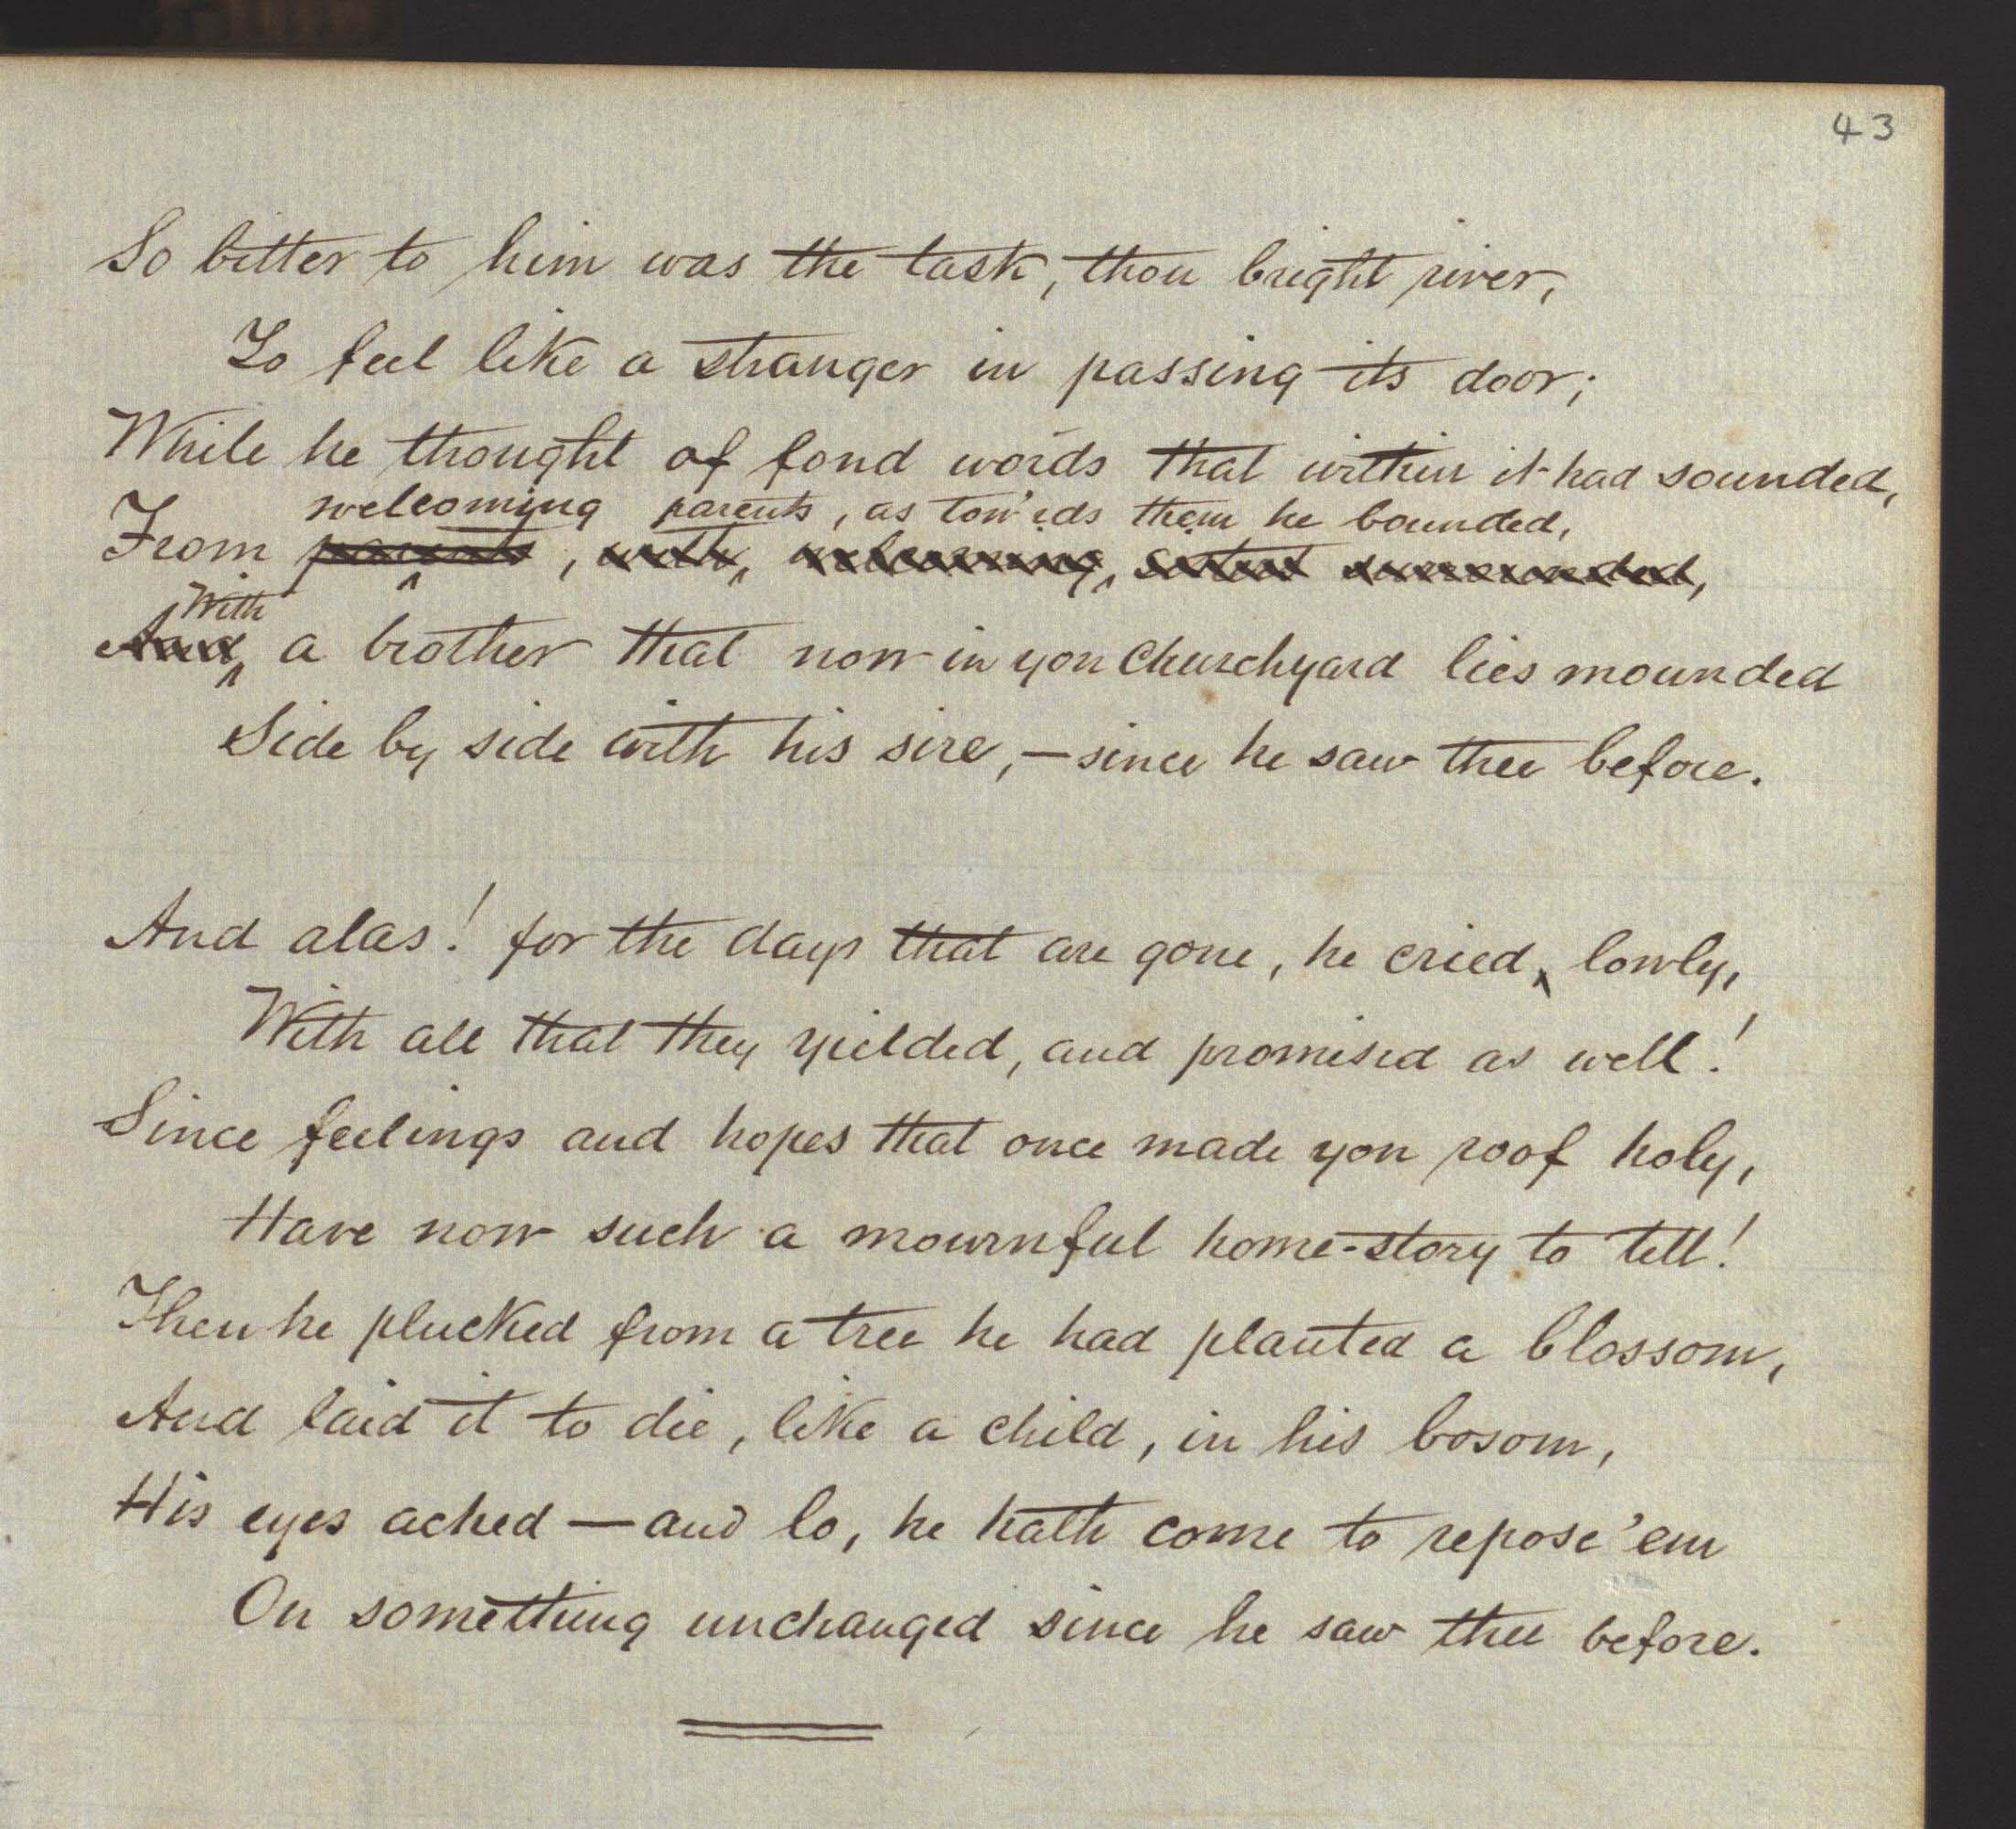 43
So bitter to him was the task, thou bright river,
To feel like a stranger in passing its door;
While he thought of fond words that within it had sounded,
welcoming parents, as tow'rds them he bounded,
From parents, with, welcoming, surrounded,
With
And a brother that now in yon Churchyard lies mounded
Side by side with his sire,—since he saw thee before.
And alas! for the days that are gone, he cried, lowly,
With all that they yielded, and promised as well!
Since feelings and hopes that once made yon roof holy,
Have now such a mournful home-story to tell!
Then he plucked from a tree he had planted a blossom,
And laid it to die, like a child, in his bosom,
His eyes ached — and lo, he hath come to repose 'em
On something unchanged since he saw thee before.